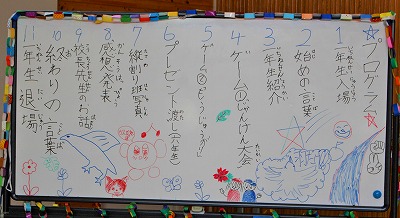 ☆プログラム☆
1 一年生入場
2 始めの言葉
3 一年生紹介
4 ゲーム①じゃんけん大会
5 ゲーム②もうじゅうがり
6 プレゼント渡し(六年生)
7 縦割り班写真
8 感想発表
9 校長先生のお話
10 終わりの言葉
11 一年生退場